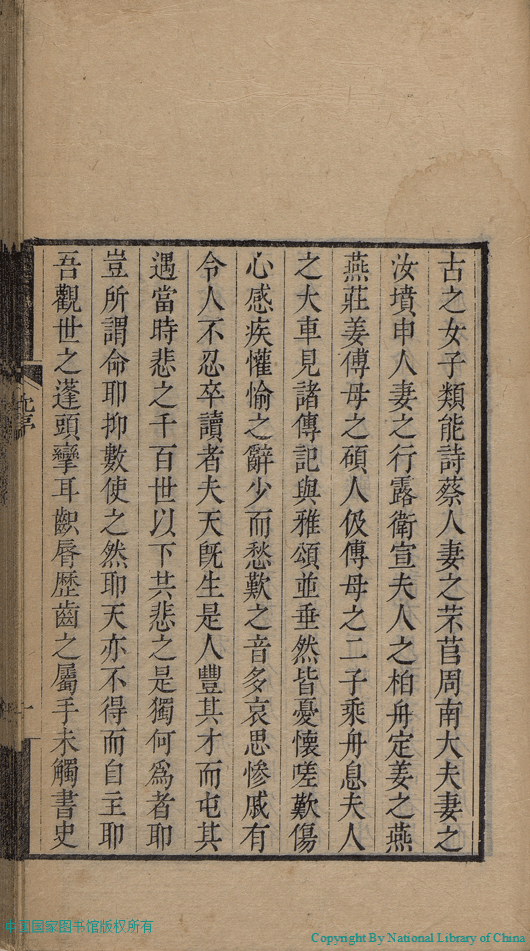 古之女子類能詩蔡人妻之芣苢周南大夫妻之
汝墳申人妻之行露衛宣夫人之柏舟定姜之燕
燕莊姜傅母之碩人伋傅母之二子乘舟息夫人
之大車見諸傳記與雅頌並垂然皆憂懷嗟歎傷
心感疾懽愉之辭少而愁歎之音多哀思慘戚有
令人不忍卒讀者夫天旣生是人豐其才而屯其
遇當時悲之千百世以下共悲之是獨何爲者耶
豈所謂命耶抑數使之然耶天亦不得而自主耶
吾觀世之蓬頭攣耳齞脣歷齒之屬手未觸書史
一
中国国家图书馆版权所有
Copyright By National Library of China